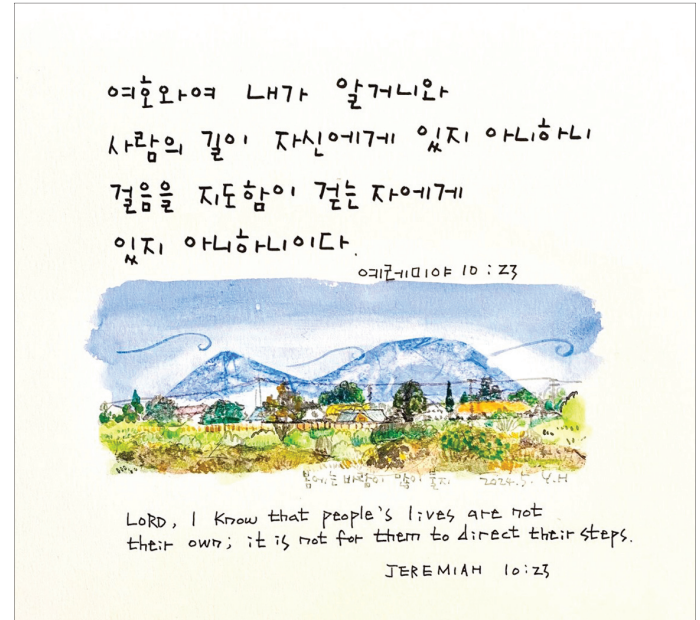 여호와여 내가 알거니와
사람의 길이 자신에게 있지 아니하니
걸음을 지도함이 걷는 자에게
있지 아니하니이다.
예레미야 10:23
봄에는 바람이 많이 불지 2024.5. Y.H
LORD, I know that people's lives are not
their own; it is not for them to direct their steps.
JEREMIAH 10:23